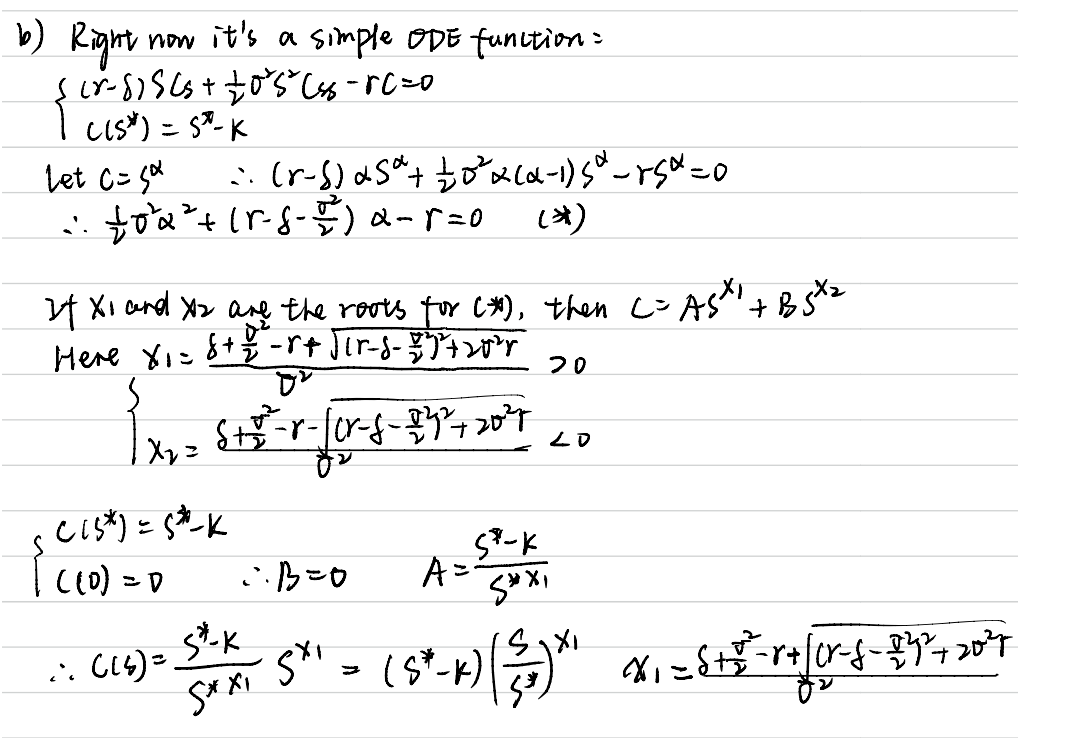 b) Right now it's a simple ODE function:
{ (r-δ)SCs + 1/2 σ²S²Css - rC=0
C(S*) = S*-K
Let C=S^α ∴ (r-δ)αS^α + 1/2 σ²α(α-1)S^α - rS^α=0
∴ 1/2 σ²α² + (r-δ-σ²/2) α - r=0 (*)
If x₁ and x₂ are the roots for (*), then C= AS^x₁ + BS^x₂
Here { x₁ = (δ+σ²/2 -r+ √((r-δ-σ²/2)²+2σ²r))/σ² >0
x₂ = (δ+σ²/2 -r- √((r-δ-σ²/2)²+2σ²r))/σ² <0
{ C(S*) = S*-K
C(0) = 0 ∴ B=0 A = (S*-K)/S*^x₁
∴ C(S)= (S*-K)/S*^x₁ S^x₁ = (S*-K)(S/S*)^x₁ x₁ = (δ+σ²/2 -r+ √((r-δ-σ²/2)²+2σ²r))/σ²